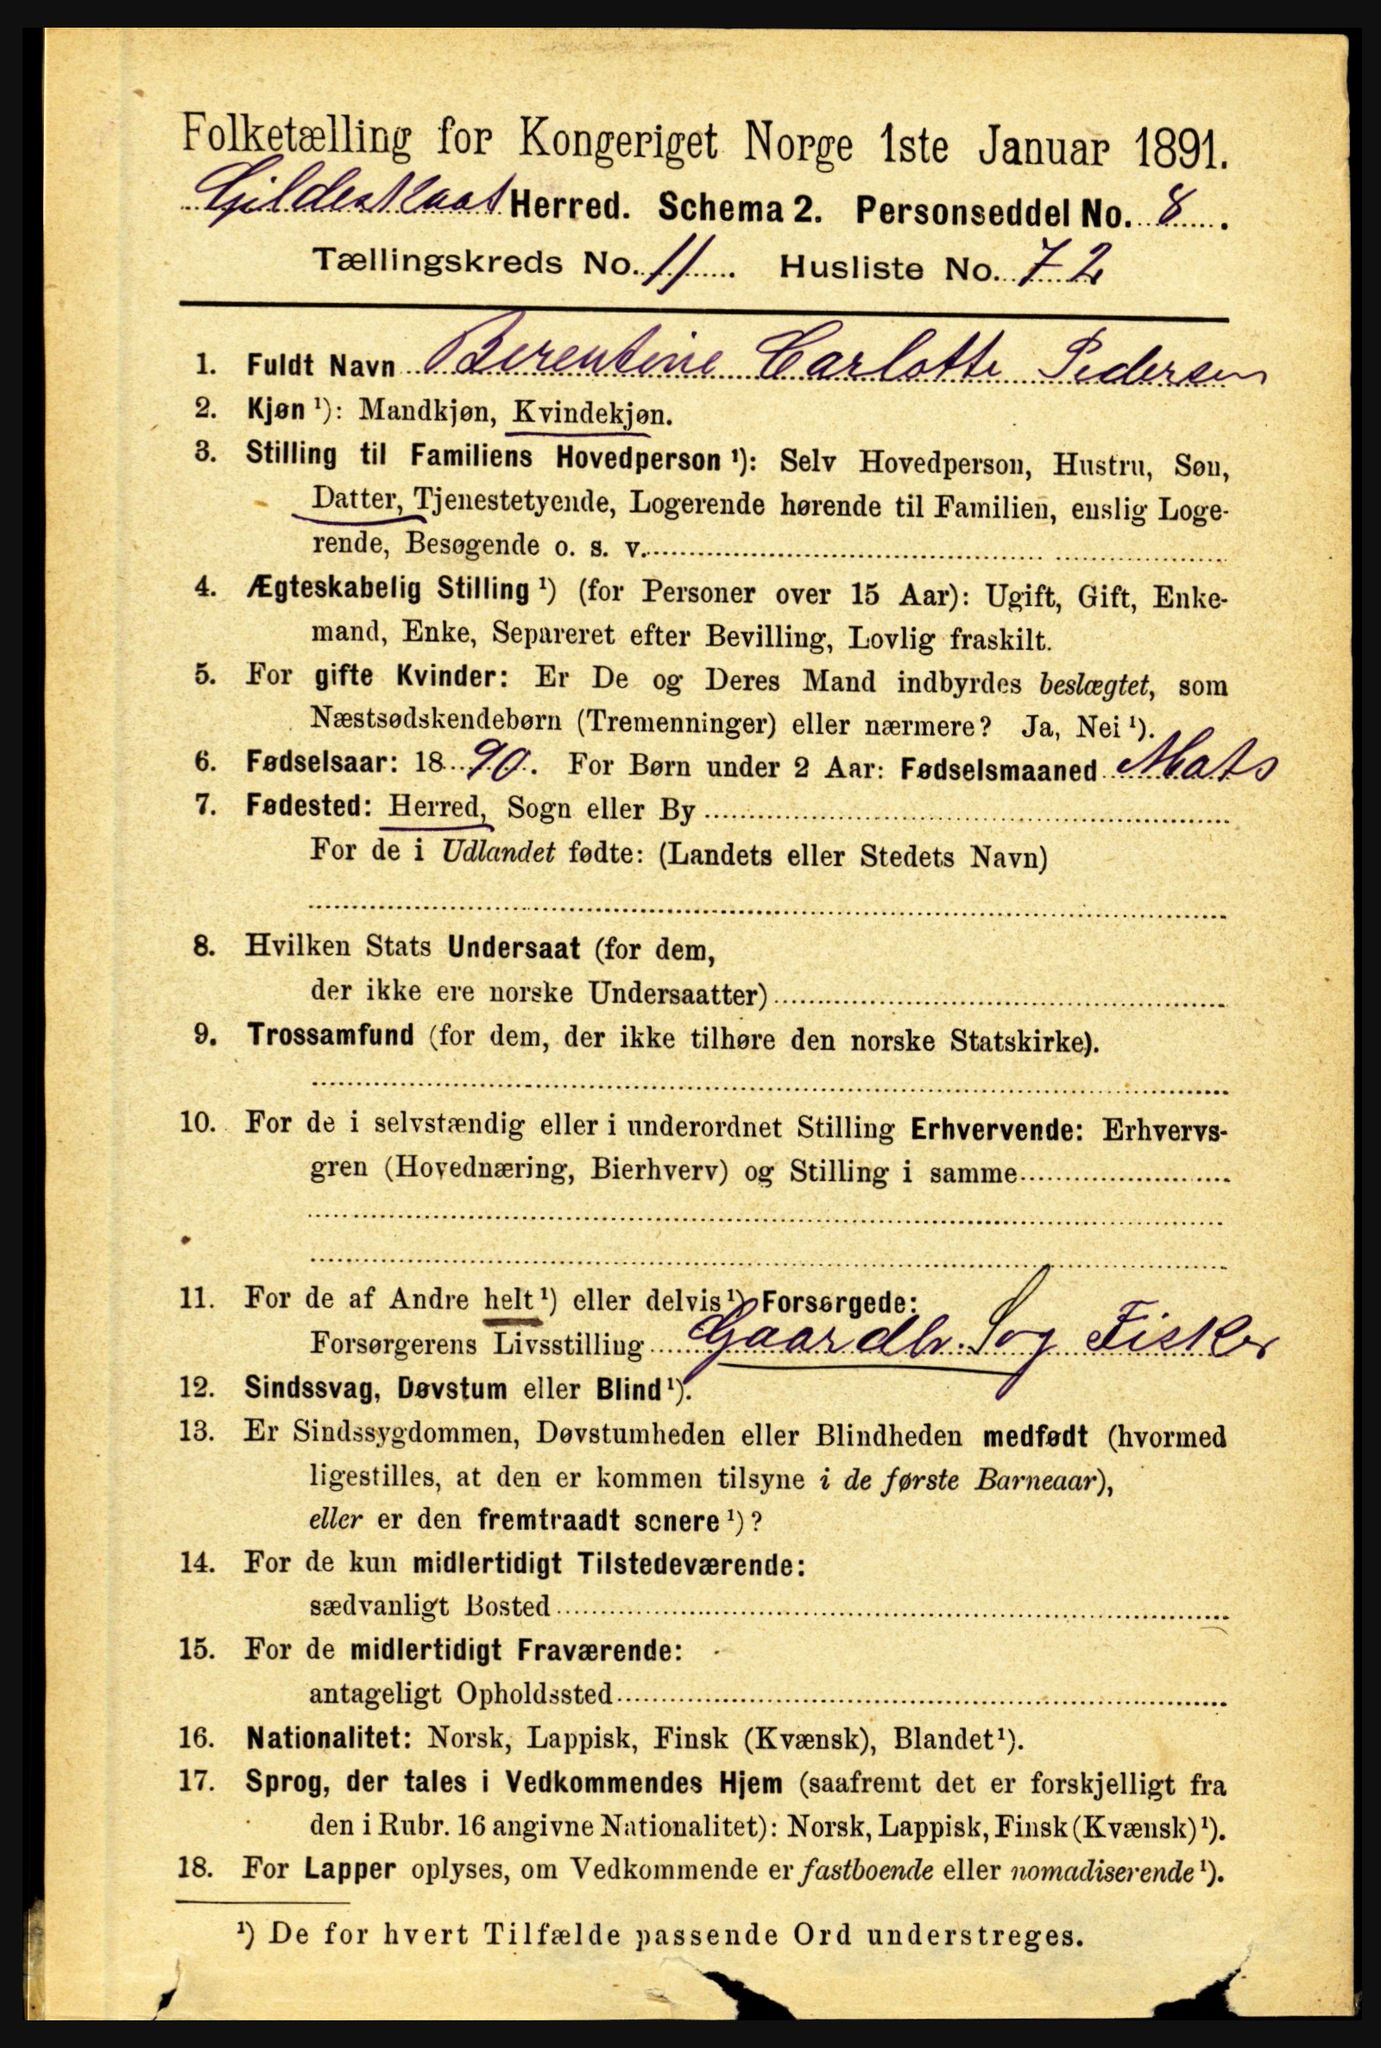 Folketælling for Kongeriget Norge 1ste Januar 1891.
Gildeskaal Herred. Schema 2. Personseddel No. 8.
Tællingskreds No. 11. Husliste No. 72
1. Fuldt Navn Berentine Carlotte Pedersen
2. Kjøn ¹): Mandkjøn, Kvindekjøn.
3. Stilling til Familiens Hovedperson ¹): Selv Hovedperson, Hustru, Søn,
Datter, Tjenestetyende, Logerende hørende til Familien, enslig Loge-
rende, Besøgende o. s. v.
4. Ægteskabelig Stilling ¹) (for Personer over 15 Aar): Ugift, Gift, Enke-
mand, Enke, Separeret efter Bevilling, Lovlig fraskilt.
5. For gifte Kvinder: Er De og Deres Mand indbyrdes beslægtet, som
Næstsødskendebørn (Tremenninger) eller nærmere? Ja, Nei ¹).
6. Fødselsaar: 1890. For Børn under 2 Aar: Fødselsmaaned Mats
7. Fødested: Herred, Sogn eller By
For de i Udlandet fødte: (Landets eller Stedets Navn)
8. Hvilken Stats Undersaat (for dem,
der ikke ere norske Undersaatter)
9. Trossamfund (for dem, der ikke tilhøre den norske Statskirke).
10. For de i selvstændig eller i underordnet Stilling Erhvervende: Erhvervs-
gren (Hovednæring, Bierhverv) og Stilling i samme
11. For de af Andre helt ¹) eller delvis ¹) Forsørgede:
Forsørgerens Livsstilling Gaardbr. S og Fisker
12. Sindssvag, Døvstum eller Blind ¹).
13. Er Sindssygdommen, Døvstumheden eller Blindheden medfødt (hvormed
ligestilles, at den er kommen tilsyne i de første Barneaar),
eller er den fremtraadt senere ¹)?
14. For de kun midlertidigt Tilstedeværende:
sædvanligt Bosted
15. For de midlertidigt Fraværende:
antageligt Opholdssted
16. Nationalitet: Norsk, Lappisk, Finsk (Kvænsk), Blandet ¹).
17. Sprog, der tales i Vedkommendes Hjem (saafremt det er forskjelligt fra
den i Rubr. 16 angivne Nationalitet): Norsk, Lappisk, Finsk (Kvænsk) ¹).
18. For Lapper oplyses, om Vedkommende er fastboende eller nomadiserende ¹).
¹) De for hvert Tilfælde passende Ord understreges.